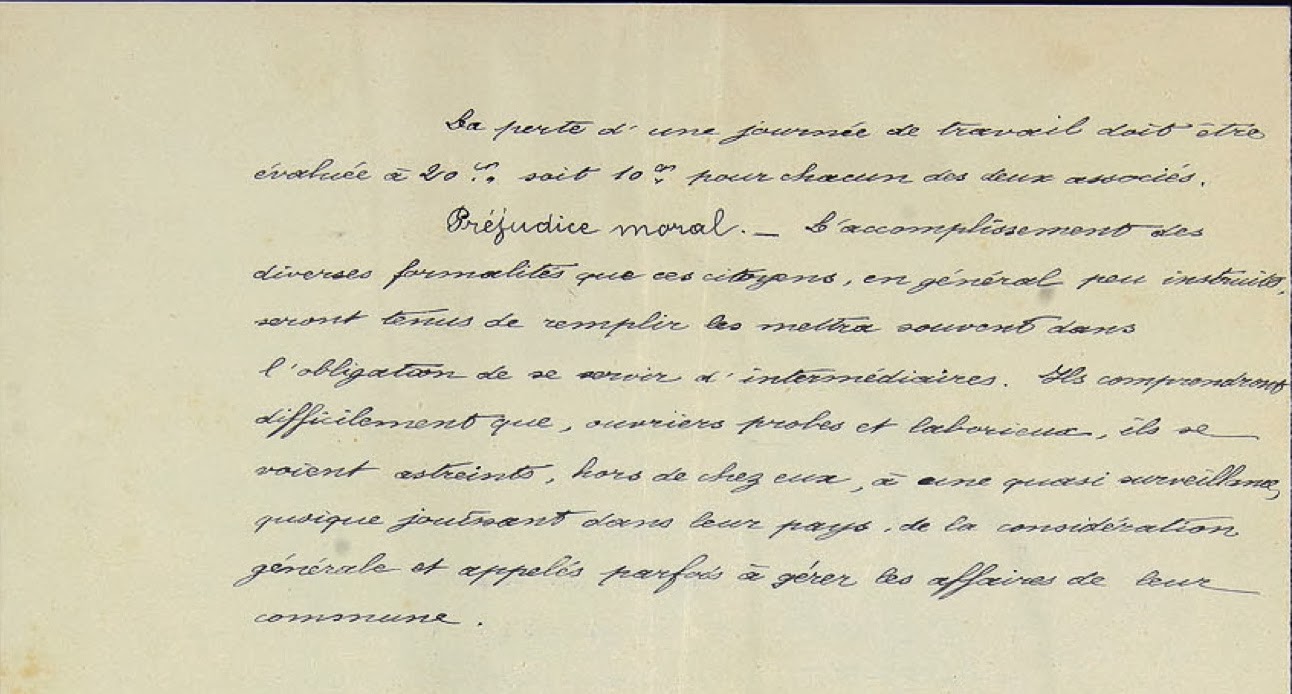 La perte d'une journée de travail doit être
évaluée à 20 frs. soit 10 fr pour chacun des deux associés.
Préjudice moral. — L'accomplissement des
diverses formalités que ces citoyens, en général peu instruits,
seront tenus de remplir les mettra souvent dans
l'obligation de se servir d'intermédiaires. Ils comprendront
difficilement que, ouvriers probes et laborieux, ils se
voient astreints, hors de chez eux, à une quasi surveillance,
quoique jouissant dans leur pays, de la considération
générale et appelés parfois à gérer les affaires de leur
commune.